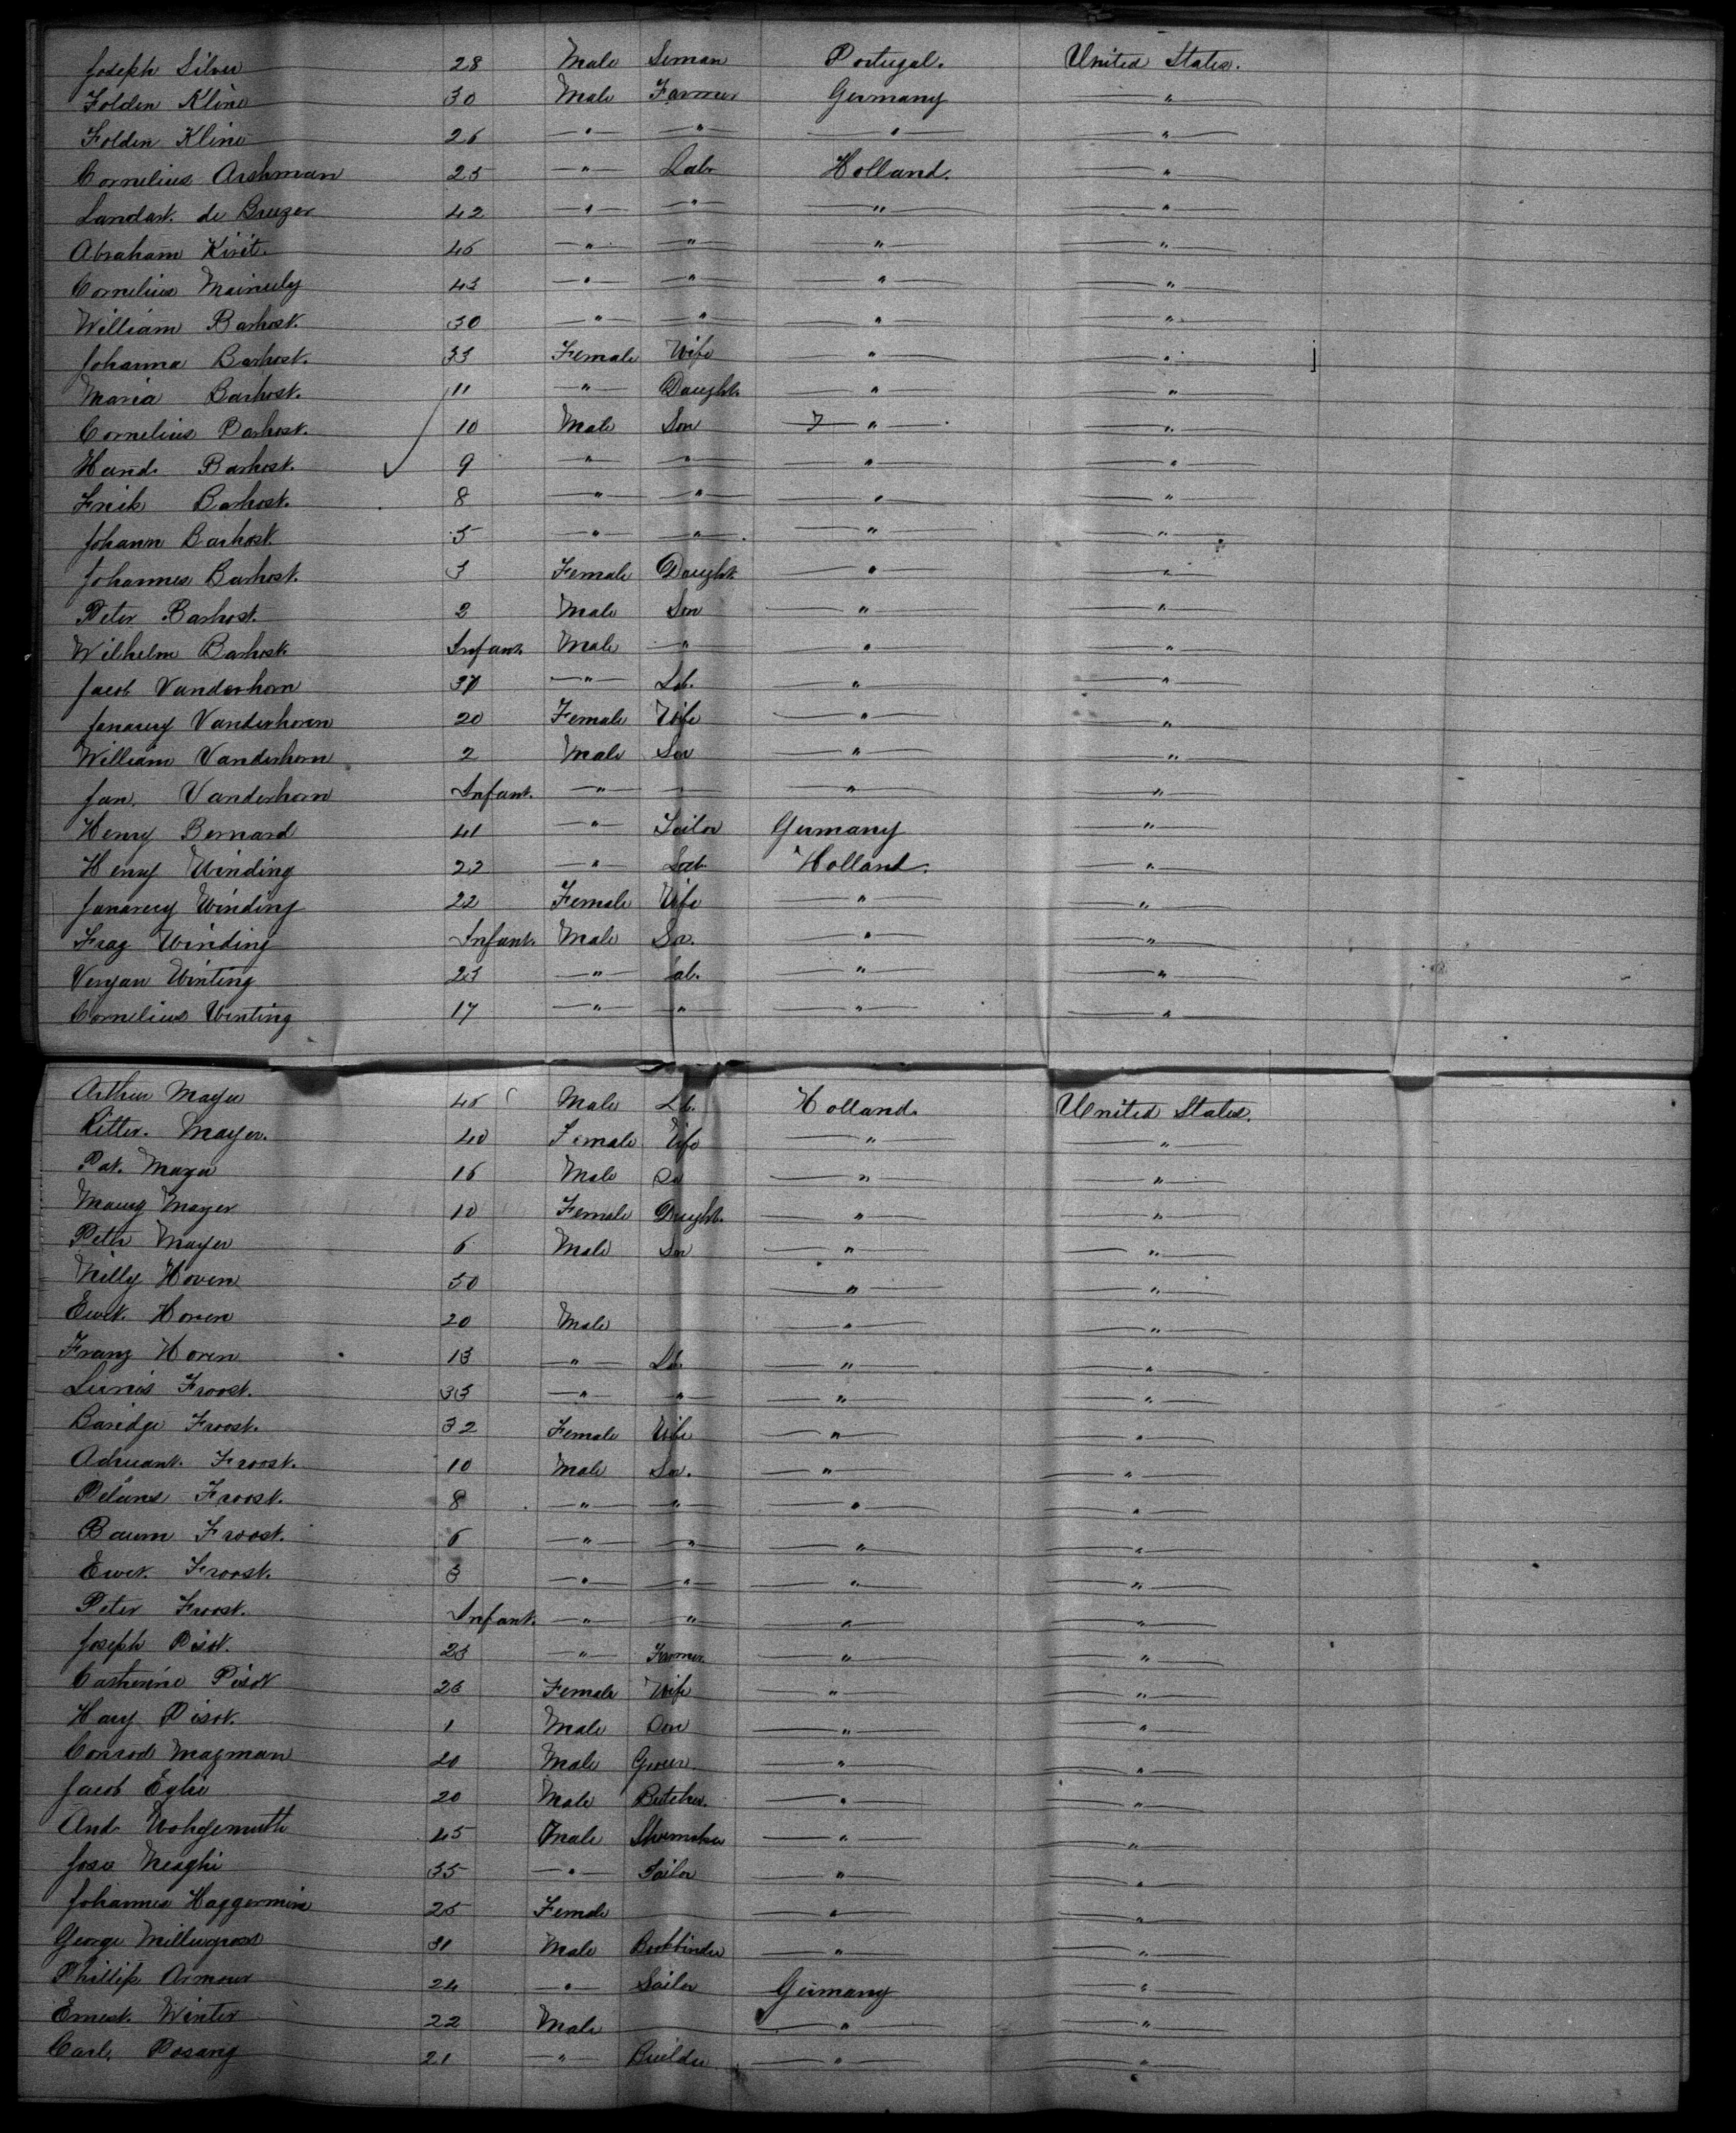 Joseph Silver 28 Male Seman Portugal. United States.
Folden Kline 30 Male Farmer Germany "
Folden Kline 26 " " " "
Cornelius Arshman 25 " Lab. Holland. "
Landart. de Bruzer 42 " " " "
Abraham Kirit. 46 " " " "
Cornelius 43 " " " "
William Barhost. 30 " " " "
Johanna Barhost. 33 Female Wife " "
Maria Barhost. 11 " Daught. " "
Cornelius Barhost. 10 Male Son " "
Hand. Barhost. 9 " " " "
Freik Barhost. 8 " " " "
Johann Barhost. 5 " " " "
Johannes Barhost. 3 Female Daught. " "
Peter Barhost. 2 Male Son " "
Wilhelm Barhost. Infant. Male " " "
Jacob Vanderhorn 37 " Lab. " "
Janarey Vanderhorn 20 Female Wife " "
William Vanderhorn 2 Male Son " "
Jan. Vanderhorn Infant. " " " "
Henry Bernard 41 " Tailor Germany "
Henry Winding 22 " Lab. Holland. "
Janarey Winding 22 Female Wife " "
Frag Winding Infant. Male Son. " "
Venjan Winting 23 " Lab. " "
Cornelius Winting 17 " " " "
Arthur Mayer 46 Male Lb. Holland. United States.
Ritter. Mayer. 40 Female Wife " "
Pat. Mayer 16 Male So " "
Maurg Mayer 10 Female Daught. " "
Peter Mayer 6 Male Son " "
Nilly Hoven 50 " "
Ewt. Horen 20 Male " "
Franz Horen 13 " Lb. " "
Lunis Froost. 33 " " " "
Baridge Froost. 32 Female Wife " "
Adrieant. Froost. 10 Male Son. " "
Pelans Froost. 8 " " " "
Baum Froost. 6 " " " "
Ewt. Froost. 3 " " " "
Peter Froost. Infant. " " " "
Joseph Pisot. 23 " Farmer. " "
Catherine Pisot 26 Female Wife " "
Hary Pisot. 1 Male Son " "
Conrod Magman 20 Male " "
Jacob Eglie 20 Male Butcher. " "
And. Wohgemuth 45 Male Shumaker " "
Jose Neaghi 35 " Tailor " "
Johannes Haggermin 25 Female " "
George Millergrost 31 Male Bookbinder " "
Phillip Armour 24 " Sailor Germany "
Ernest. Winter 22 Male " "
Carl. Posang 21 " Builder " "